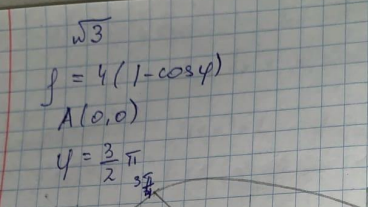 √3
ρ = 4(1-cosφ)
A(0,0)
φ = 3/2 π
3π/4